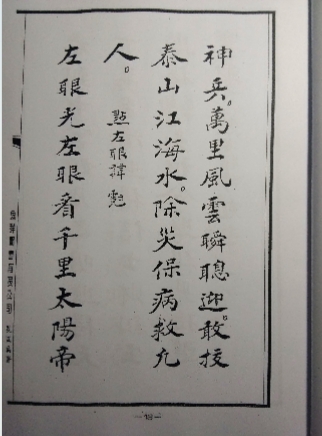 神兵。萬里風雲瞬聰迎。敢扳
泰山江海水。除災保病救凡
人。 點左眼諱
左眼光左眼看千里太陽帝